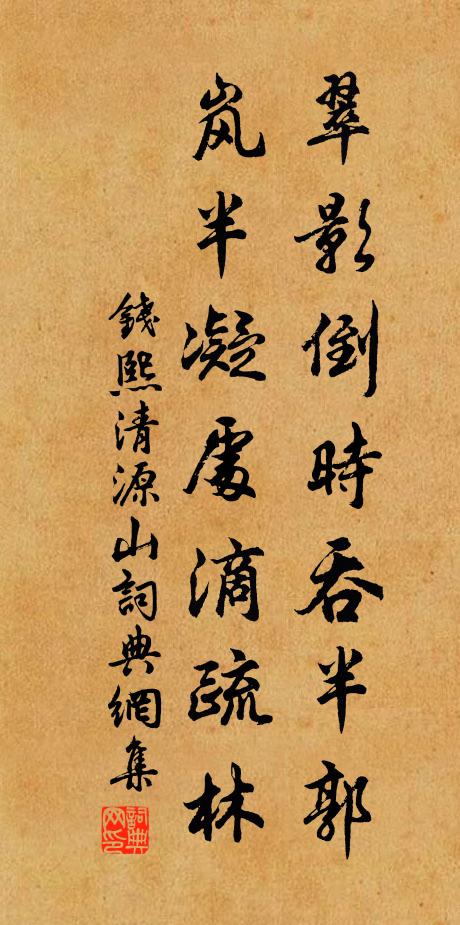 翠影倒時吞半郭
岚半凝處滴疏林
錢熙清源山詞典網集
詞典网印